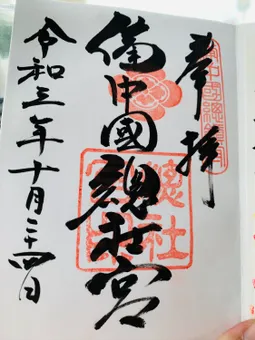 奉拝
備中國總社宮
總社
宮印
令和三年十月二十四日